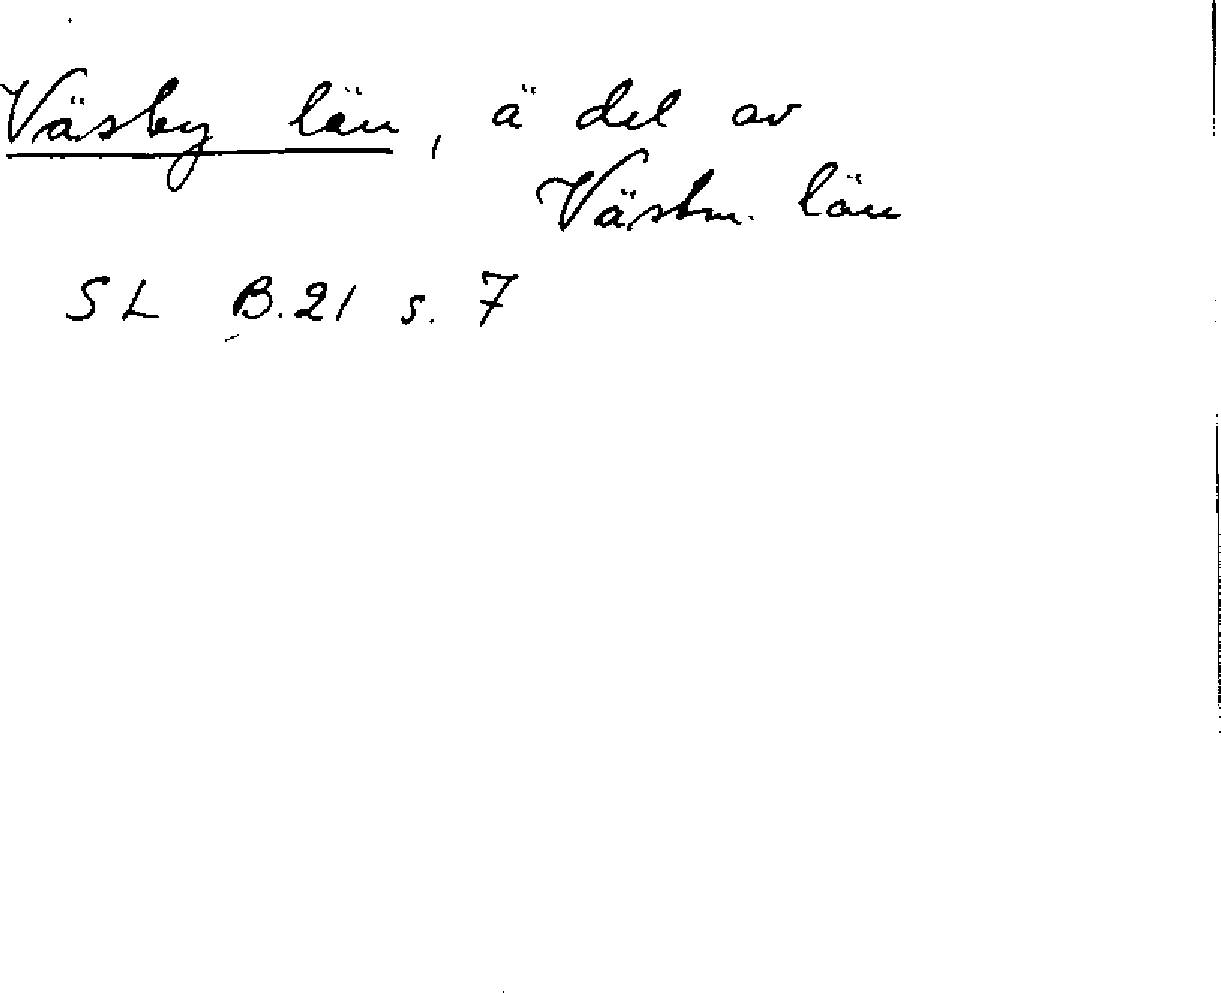 Väsby län, ä del av
Västm. län
SL B.21 s. 7